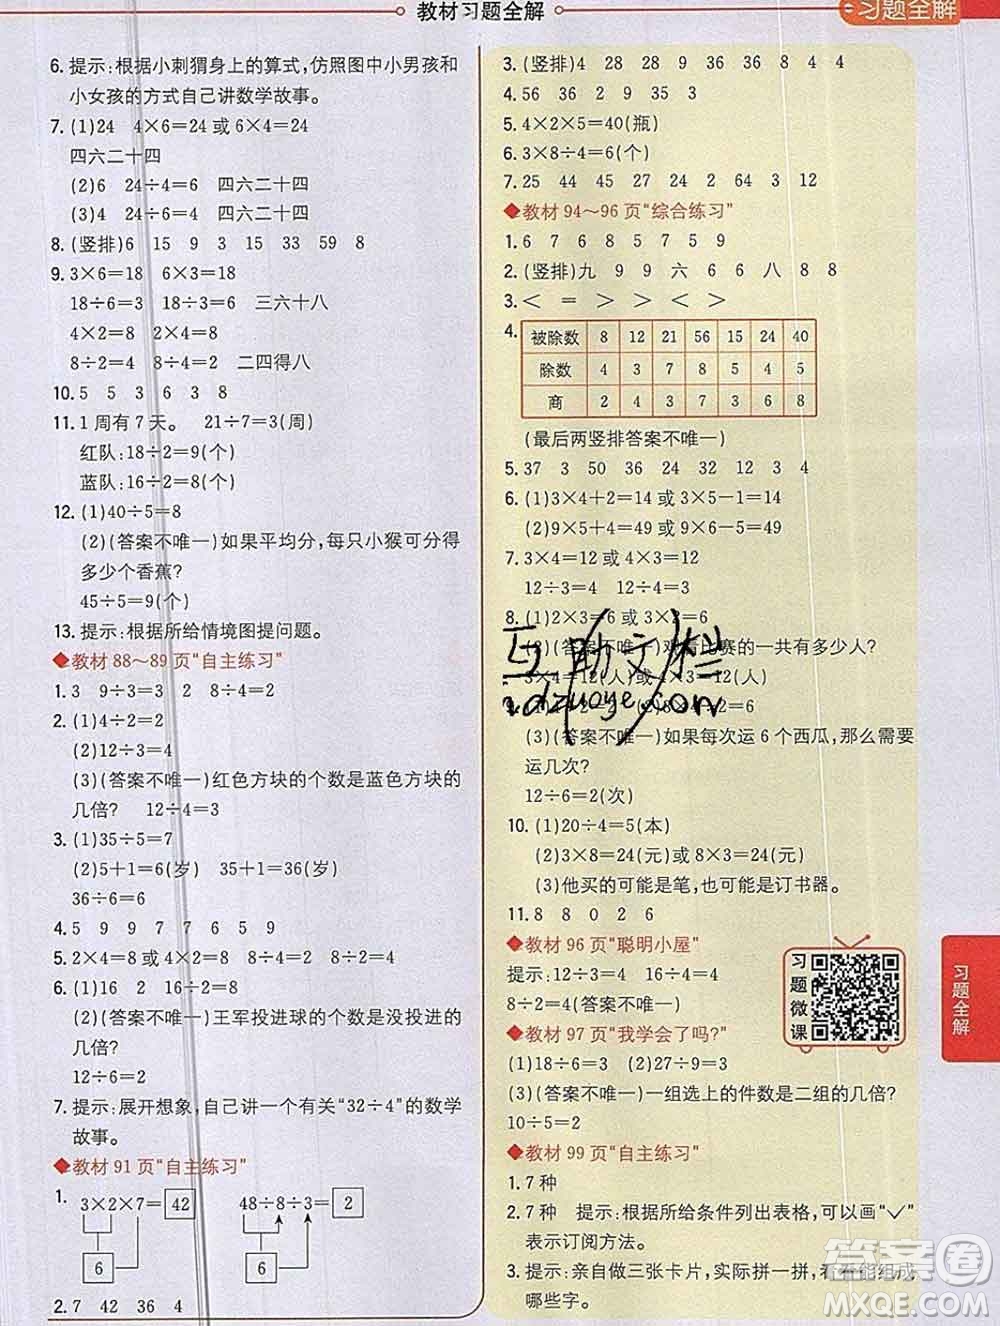 教材习题全解
习题全解
6. 提示:根据小刺猬身上的算式,仿照图中小男孩和
小女孩的方式自己讲数学故事。
7. (1)24 4×6=24 或 6×4=24
四六二十四
(2)6 24÷4=6 四六二十四
(3)4 24÷6=4 四六二十四
8. (竖排)6 15 9 3 15 33 59 8
9. 3×6=18 6×3=18
18÷6=3 18÷3=6 三六十八
4×2=8 2×4=8
8÷2=4 8÷4=2 二四得八
10. 5 5 3 6 3 8
11. 1 周有 7 天。 21÷7=3(周)
红队:18÷2=9(个)
蓝队:16÷2=8(个)
12. (1)40÷5=8
(2)(答案不唯一)如果平均分,每只小猴可分得
多少个香蕉?
45÷5=9(个)
13. 提示:根据所给情境图提问题。
◆教材 88～89 页“自主练习”
1. 3 9÷3=3 2 8÷4=2
2. (1)4÷2=2
(2)12÷3=4
(3)(答案不唯一)红色方块的个数是蓝色方块的
几倍? 12÷4=3
3. (1)35÷5=7
(2)5+1=6(岁) 35+1=36(岁)
36÷6=6
4. 5 9 9 7 7 6 5 9
5. 2×4=8 或 4×2=8 8÷2=4
6. (1)16 2 16÷2=8
(2)(答案不唯一)王军投进球的个数是没投进的
几倍?
12÷6=2
7. 提示:展开想象,自己讲一个有关“32÷4”的数学
故事。
◆教材 91 页“自主练习”
1. 3×2×7=42 48÷8÷3=2
6 6
2. 7 42 36 4
3. (竖排)4 28 28 9 36 36 8 4 4
4. 56 36 2 9 35 3
5. 4×2×5=40(瓶)
6. 3×8÷4=6(个)
7. 25 44 45 21 2 64 3 12
◆教材 94～96 页“综合练习”
1. 6 7 6 8 5 7 5 9
2. (竖排)九 9 9 六 6 6 八 8 8
3. < = > > < >
4. 被除数 8 12 21 56 15 24 40
除数 4 3 7 8 5 4 5
商 2 4 3 7 3 6 8
(最后两竖排答案不唯一)
5. 37 3 50 36 24 32 12 3 4
6. (1)3×4+2=14 或 3×5-1=14
(2)9×5+4=49 或 9×6-5=49
7. 3×4=12 或 4×3=12
12÷3=4 12÷4=3
8. (1)2×3=6 或 3×2=6
(2)(答案不唯一)观看比赛的一共有多少人?
3×4=12(人)或 4×3=12(人)
(2)8×4÷2=6
(3)(答案不唯一)如果每次运 6 个西瓜,那么需要
运几次?
12÷6=2(次)
10. (1)20÷4=5(本)
(2)3×8=24(元)或 8×3=24(元)
(3)他买的可能是笔,也可能是订书器。
11. 8 8 0 2 6
◆教材 96 页“聪明小屋”
提示:12÷3=4 16÷4=4
8÷2=4(答案不唯一)
◆教材 97 页“我学会了吗?”
(1)18÷6=3 (2)27÷9=3
(3)(答案不唯一)一组选上的件数是二组的几倍?
10÷5=2
◆教材 99 页“自主练习”
1. 7 种
2. 7 种 提示:根据所给条件列出表格,可以画“✓”
表示订阅方法。
3. 提示:亲自做三张卡片,实际拼一拼,看看能组成
哪些字。
习题微课
习题全解
互助文档
答案圈
MXQE.COM